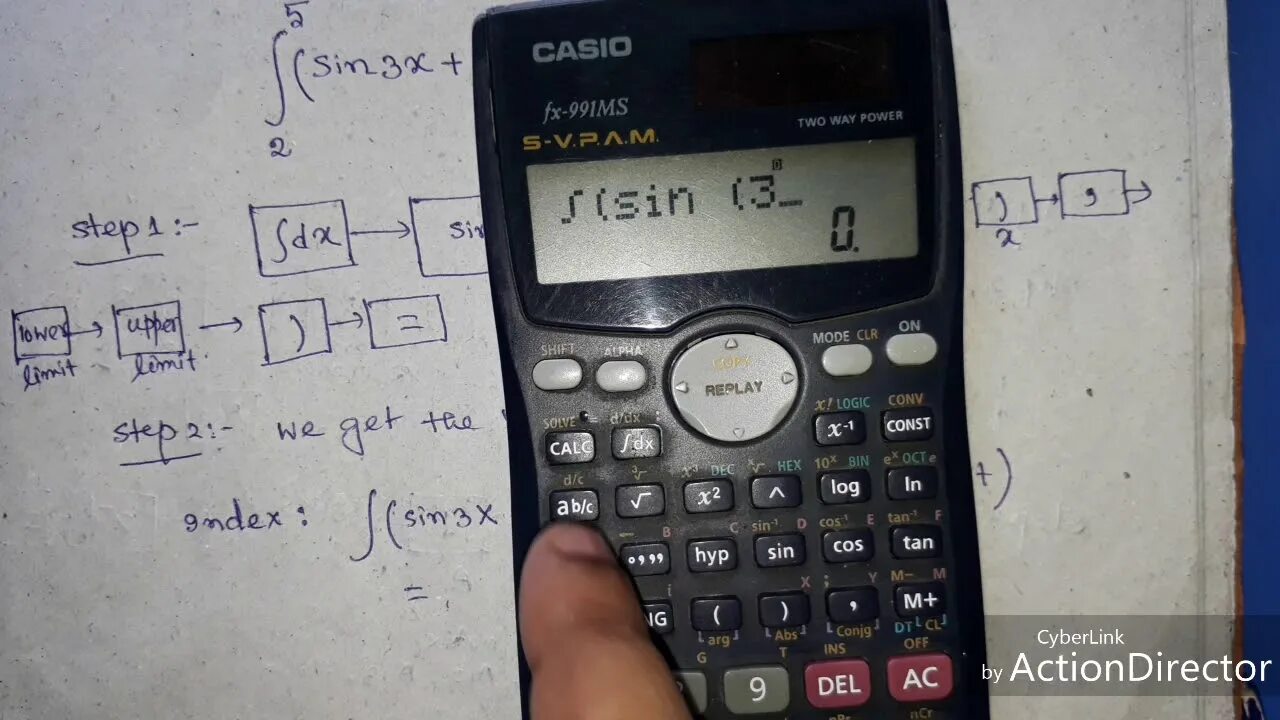 5
∫(sin3x+
2
CASIO
fx-991MS
TWO WAY POWER
S-V.P.A.M.
∫(sin (3_
0.
step 1:- ∫dx → sin ) → , →
x
lower → upper → ) → =
limit limit
step 2:- we get the
index: ∫(sin3x +)
=
SHIFT ALPHA COPY REPLAY MODE CLR ON
SOLVE = d/dx : x! LOGIC CONV
CALC ∫dx x⁻¹ CONST
d/c ³√ x³ DEC ˣ√ HEX 10ˣ BIN eˣ OCT e
a b/c √ x² ^ log ln
← B C sin⁻¹ D cos⁻¹ E tan⁻¹ F
° , ,, hyp sin cos tan
i X ; Y M− M
NG ( ) , M+
arg Abs Conjg DT CL
G T INS OFF
9 DEL AC
nPr nCr
CyberLink
by ActionDirector